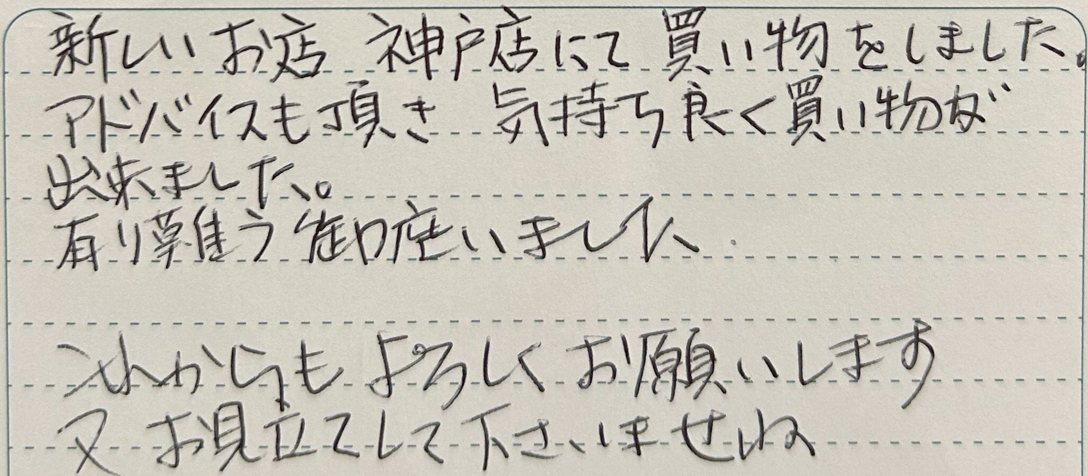 新しいお店 神戸店にて買い物をしました。
アドバイスも頂き 気持ち良く買い物が
出来ました。
有り難う御座いました.
これからもよろしくお願いします
又お見立てして下さいませね